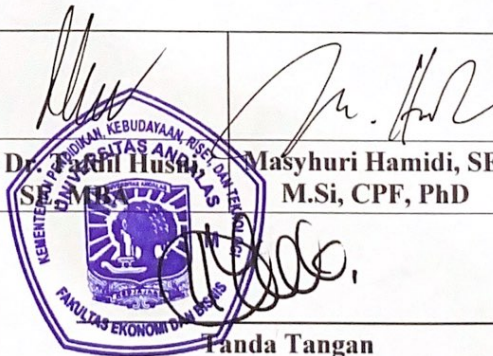 Dr. Fadhil Husni
SE, MBA
Masyhuri Hamidi, SE
M.Si, CPF, PhD
KEMENTERIAN PENDIDIKAN, KEBUDAYAAN, RISET, DAN TEKNOLOGI
UNIVERSITAS ANDALAS
FAKULTAS EKONOMI DAN BISNIS
Tanda Tangan